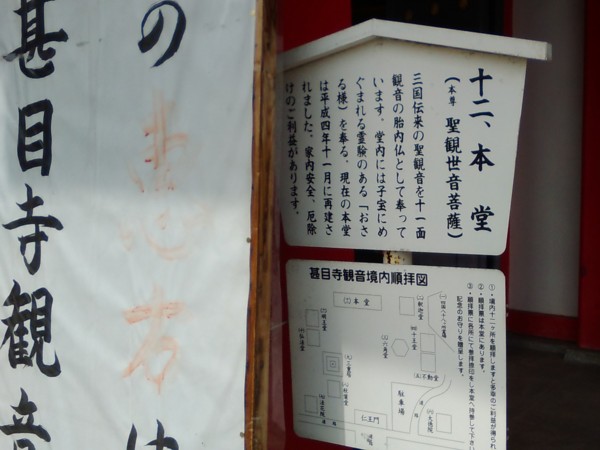 の
は
甚目寺観音
十二、本堂
(本尊 聖観世音菩薩)
三国伝来の聖観音を十一面
観音の胎内仏として奉って
います。堂内には子宝にめ
ぐまれる霊験のある「おさ
る様」を奉る。現在の本堂
は平成四年十一月に再建さ
れました。家内安全、厄除
けのご利益があります。
甚目寺観音境内順拝図
①・境内十二ヶ所を順拝しますと多数のご利益が得られ
②・順拝票は本堂にあります。
③・順拝票に各所にて参拝捺印をし本堂へ持参して下さい
記念のお守りを贈呈します。
本堂
釈迦堂
十王堂
六角堂
不動堂
三重塔
駐車場
仁王門